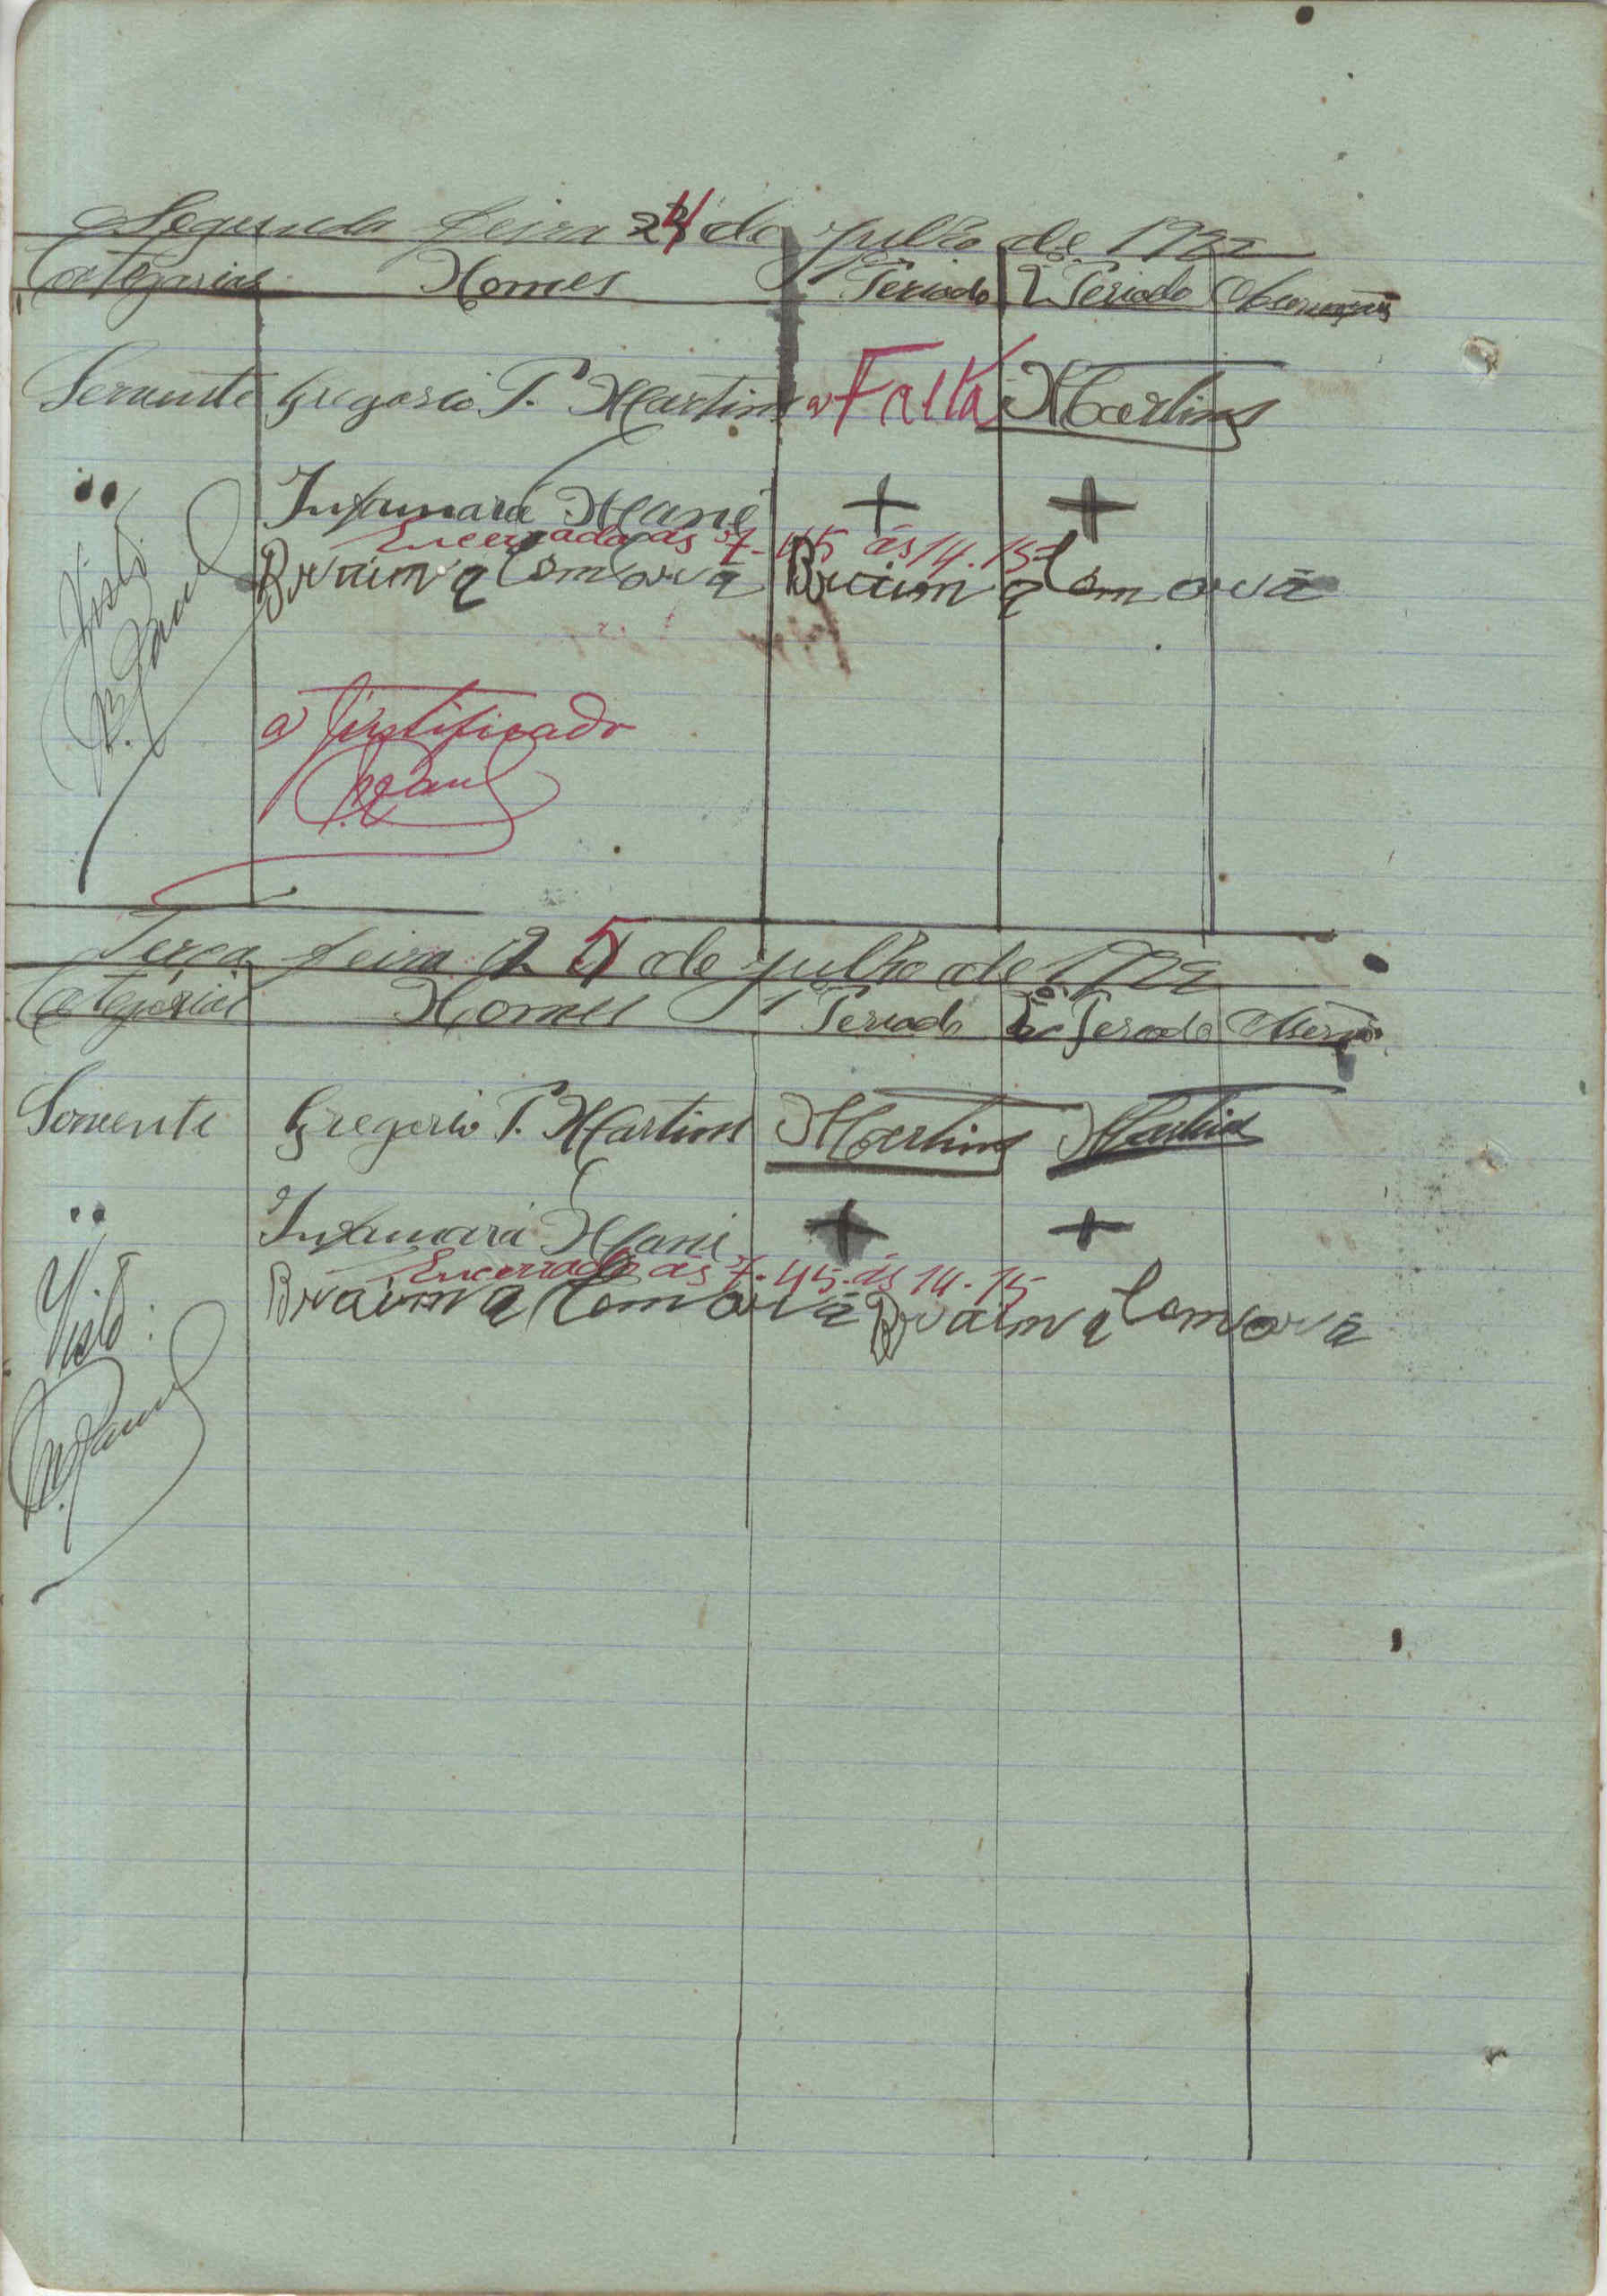 Segunda feira 24 de julho de 1922
Categorias Nomes 1º Periodo 2º Periodo Observações
Servente Gregorio T. Martins a) Falta Martins
" Infamará Mané + +
Encerrado ás 7-45 ás 14.15
Braima Camará Braima Camará
Visto
a) Justificado
Terça feira 25 de julho de 1922
Categorias Nomes 1º Periodo 2º Periodo
Servente Gregorio T. Martins Martins Martins
" Infamará Mané + +
Encerrado ás 7.45 ás 14.15
Braima Camará Braima Camará
Visto: